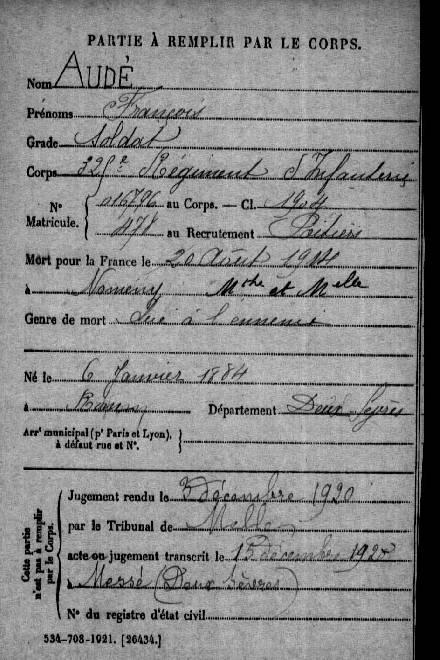 PARTIE À REMPLIR PAR LE CORPS.
Nom AUDÉ
Prénoms François
Grade Soldat
Corps 325e Régiment d'Infanterie
N° Matricule. { 016796 au Corps. — Cl. 1904
478 au Recrutement Poitiers
Mort pour la France le 20 Août 1914
à Nomeny Mthe et Melle
Genre de mort Tué à l'ennemi
Né le 6 Janvier 1884
à Département Deux Sèvres
Arrt municipal (pr Paris et Lyon), à défaut rue et N°. }
Cette partie n'est pas à remplir par le Corps.
Jugement rendu le 3 décembre 1920
par le Tribunal de Melle
acte ou jugement transcrit le 15 décembre 1920
à Messé (Deux Sèvres)
N° du registre d'état civil
534-708-1921. [26434.]